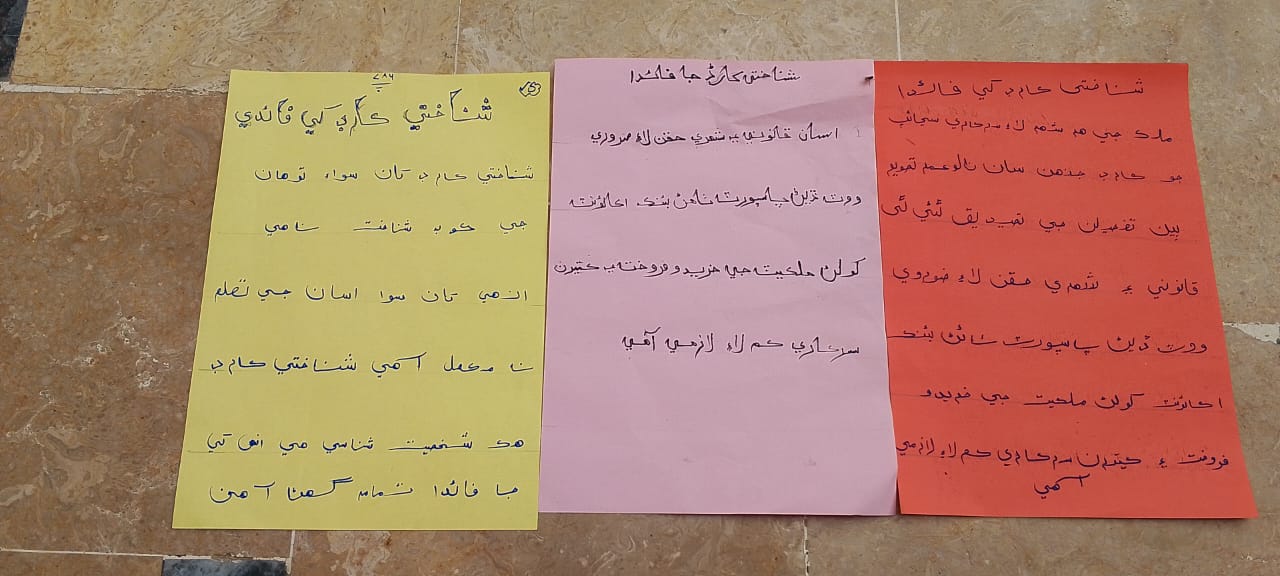 شناختي ڪارڊ کي فائدي
شناختي ڪارڊ کان سواء توهان
جي ڪوبه شناخت ناهي
ان هي کان سوا اسان جي تعلم
نا مڪمل آهي شناختي ڪارڊ
هڪ شخصيت شناسي هي ان کي
جا فائدا تمام گهڻا آهن
شناختي ڪارڊ جا فائدا
اسان قانوني ۽ شهري حقن لاءِ ضروري
ووٽ ڏيڻ پاسپورٽ ٺاهڻ بئنڪ اڪائونٽ
کولڻ ملڪيت جي خريد و فروخت ۽ ڪيترن
سرڪاري ڪم لاءِ لازمي آهي
شناختي ڪارڊ کي فائدا
ملڪ جي هر شهر لاءِ سرڪاري سڃاڻپ
جو ڪارڊ جنهن سان نالو عمر تصوير
ٻين تفصيلن جي تصديق ٿئي ٿي
قانوني ۽ شهري حقن لاءِ ضروري
ووٽ ڏيڻ پاسپورٽ ٺاهڻ بئنڪ
اڪائونٽ کولڻ ملڪيت جي خريد و
فروخت ۽ ڪيترن سرڪاري ڪم لاءِ لازمي
آهي